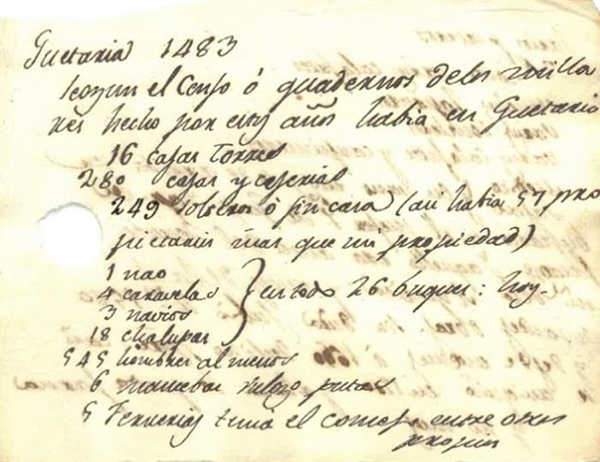 Guetaria 1483
segun el Censo ó quadernos delos milla
res hecho por estos años habia en Guetaria
16 casas Torres
280 casas y caserias
249 solteros ó sin casa (asi habia 57 pro
pietarios mas que propiedad)
1 nao
4 caravelas
3 navios
18 chalupas
en todo 26 buques: hoy.
545 hombres al menos
6 putas
5 Ferrerias tenia el entre otros
propios